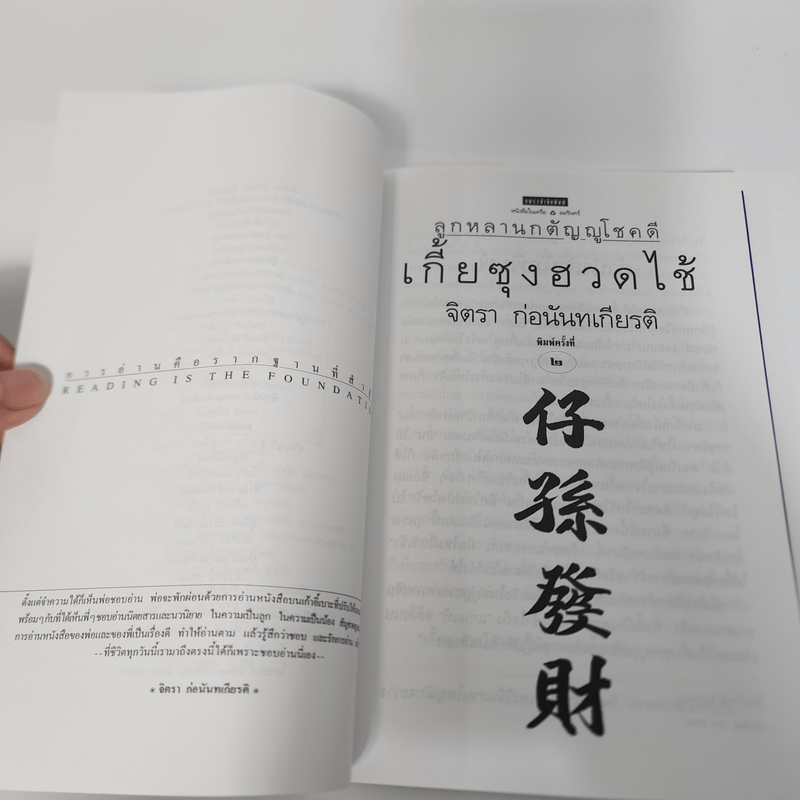 การอ่านคือรากฐานที่สำ
READING IS THE FOUNDATI
ตั้งแต่จำความได้ก็เห็นพ่อชอบอ่าน พ่อจะพักผ่อนด้วยการอ่านหนังสือบนเก้าอี้เบาะที่ปรับได้
พร้อมๆกับที่ได้เห็นพี่ๆชอบอ่านนิตยสารและนวนิยาย ในความเป็นลูก ในความเป็นน้อง
การอ่านหนังสือของพ่อและของพี่เป็นเรื่องดี ทำให้อ่านตาม แล้วรู้สึกว่าชอบ และรักการอ่าน
--ที่ชีวิตทุกวันนี้เรามาถึงตรงนี้ได้ก็เพราะชอบอ่านนี่เอง--
* จิตรา ก่อนันทเกียรติ *
แพรวสำนักพิมพ์
หนังสือในเครือ อมรินทร์
ลูกหลานกตัญญูโชคดี
เกี้ยซุงฮวดไช้
จิตรา ก่อนันทเกียรติ
พิมพ์ครั้งที่
๒
仔
孫
發
財